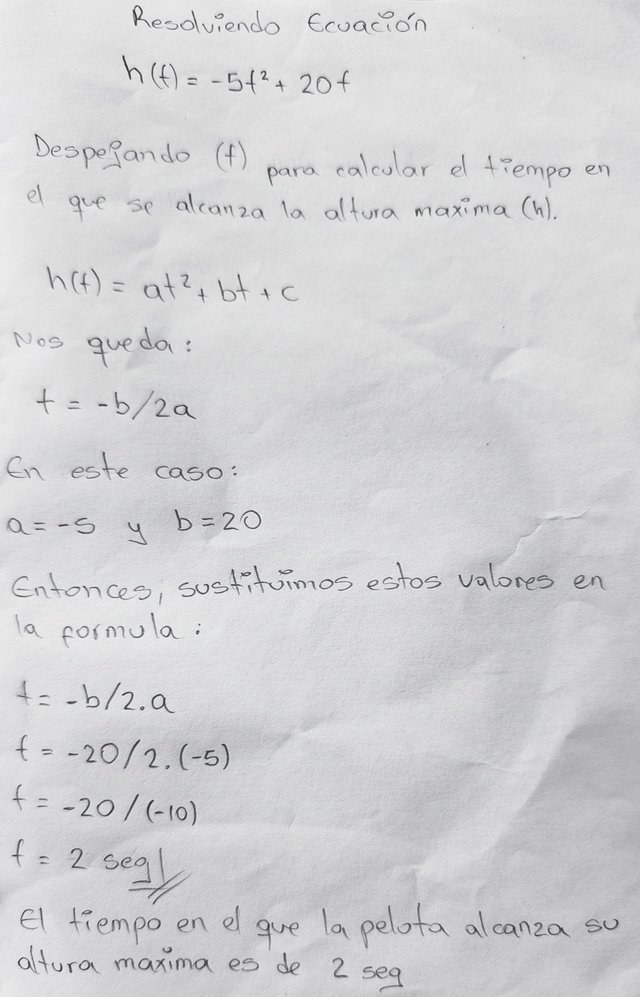 Resolviendo Ecuación
h(t) = -5t² + 20t
Despejando (t) para calcular el tiempo en
el que se alcanza la altura maxima (h).
h(t) = at² + bt + c
Nos queda:
t = -b/2a
En este caso:
a = -5 y b = 20
Entonces, sustituimos estos valores en
la formula:
t = -b/2.a
t = -20/2.(-5)
t = -20/(-10)
t = 2 seg
El tiempo en el que la pelota alcanza su
altura maxima es de 2 seg